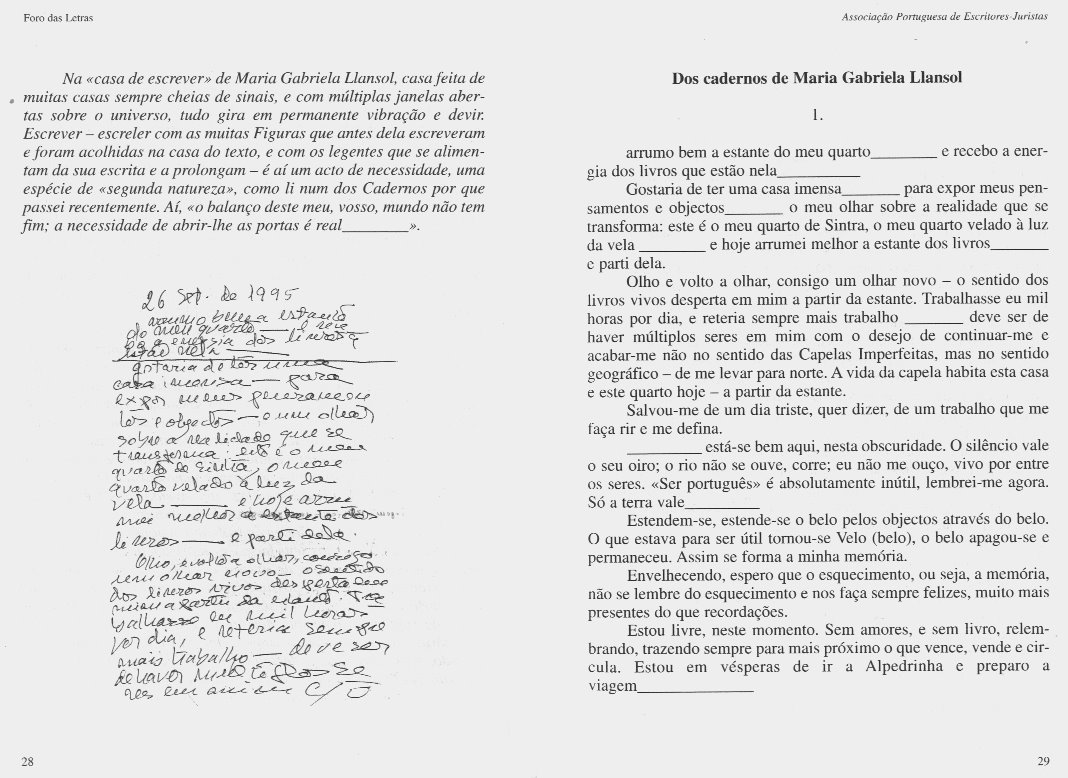 Foro das Letras
Na «casa de escrever» de Maria Gabriela Llansol, casa feita de
muitas casas sempre cheias de sinais, e com múltiplas janelas aber-
tas sobre o universo, tudo gira em permanente vibração e devir.
Escrever – escreler com as muitas Figuras que antes dela escreveram
e foram acolhidas na casa do texto, e com os legentes que se alimen-
tam da sua escrita e a prolongam – é aí um acto de necessidade, uma
espécie de «segunda natureza», como li num dos Cadernos por que
passei recentemente. Aí, «o balanço deste meu, vosso, mundo não tem
fim; a necessidade de abrir-lhe as portas é real________».
26 Set. de 1995
arrumo bem a estante
do meu quarto ___ e rece
bo a energia dos livros q
estão nela ___
gostaria de ter uma
casa imensa ___ para
expor meus pensamen
tos e objectos ___ o meu olhar
sobre a realidade que se
transforma: este é o meu
quarto de Sintra, o meu
quarto velado à luz da
vela ___ e hoje arru
mei melhor a estante dos
livros ___ e parti dela.
Olho, e volto a olhar, consigo
um olhar novo – o sentido
dos livros vivos desperta em
mim a partir da estante. Tra
balhasse eu mil horas
por dia, e reteria sempre
mais trabalho ___ deve ser
de haver múltiplos se
res em mim c/ o
28
Associação Portuguesa de Escritores-Juristas
Dos cadernos de Maria Gabriela Llansol
1.
arrumo bem a estante do meu quarto________ e recebo a ener-
gia dos livros que estão nela__________
Gostaria de ter uma casa imensa_______ para expor meus pen-
samentos e objectos_______ o meu olhar sobre a realidade que se
transforma: este é o meu quarto de Sintra, o meu quarto velado à luz
da vela ________ e hoje arrumei melhor a estante dos livros_______
e parti dela.
Olho e volto a olhar, consigo um olhar novo – o sentido dos
livros vivos desperta em mim a partir da estante. Trabalhasse eu mil
horas por dia, e reteria sempre mais trabalho _______ deve ser de
haver múltiplos seres em mim com o desejo de continuar-me e
acabar-me não no sentido das Capelas Imperfeitas, mas no sentido
geográfico – de me levar para norte. A vida da capela habita esta casa
e este quarto hoje – a partir da estante.
Salvou-me de um dia triste, quer dizer, de um trabalho que me
faça rir e me defina.
_________ está-se bem aqui, nesta obscuridade. O silêncio vale
o seu oiro; o rio não se ouve, corre; eu não me ouço, vivo por entre
os seres. «Ser português» é absolutamente inútil, lembrei-me agora.
Só a terra vale_________
Estendem-se, estende-se o belo pelos objectos através do belo.
O que estava para ser útil tornou-se Velo (belo), o belo apagou-se e
permaneceu. Assim se forma a minha memória.
Envelhecendo, espero que o esquecimento, ou seja, a memória,
não se lembre do esquecimento e nos faça sempre felizes, muito mais
presentes do que recordações.
Estou livre, neste momento. Sem amores, e sem livro, relem-
brando, trazendo sempre para mais próximo o que vence, vende e cir-
cula. Estou em vésperas de ir a Alpedrinha e preparo a
viagem______________
29